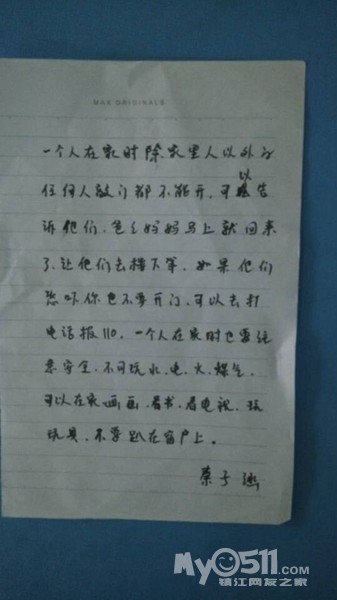 MAX ORIGINALS
一个人在家时除家里人以外的
任何人敲门都不能开,可以告
诉他们,爸爸妈妈马上就回来
了,让他们去楼下等,如果他们
恐吓你也不要开门,可以去打
电话报110,一个人在家时也要注
意安全,不可玩水,电,火,煤气,
可以在家画画,看书,看电视,玩
玩具,不要趴在窗户上。
蔡子涵
My0511.com
镇江网友之家